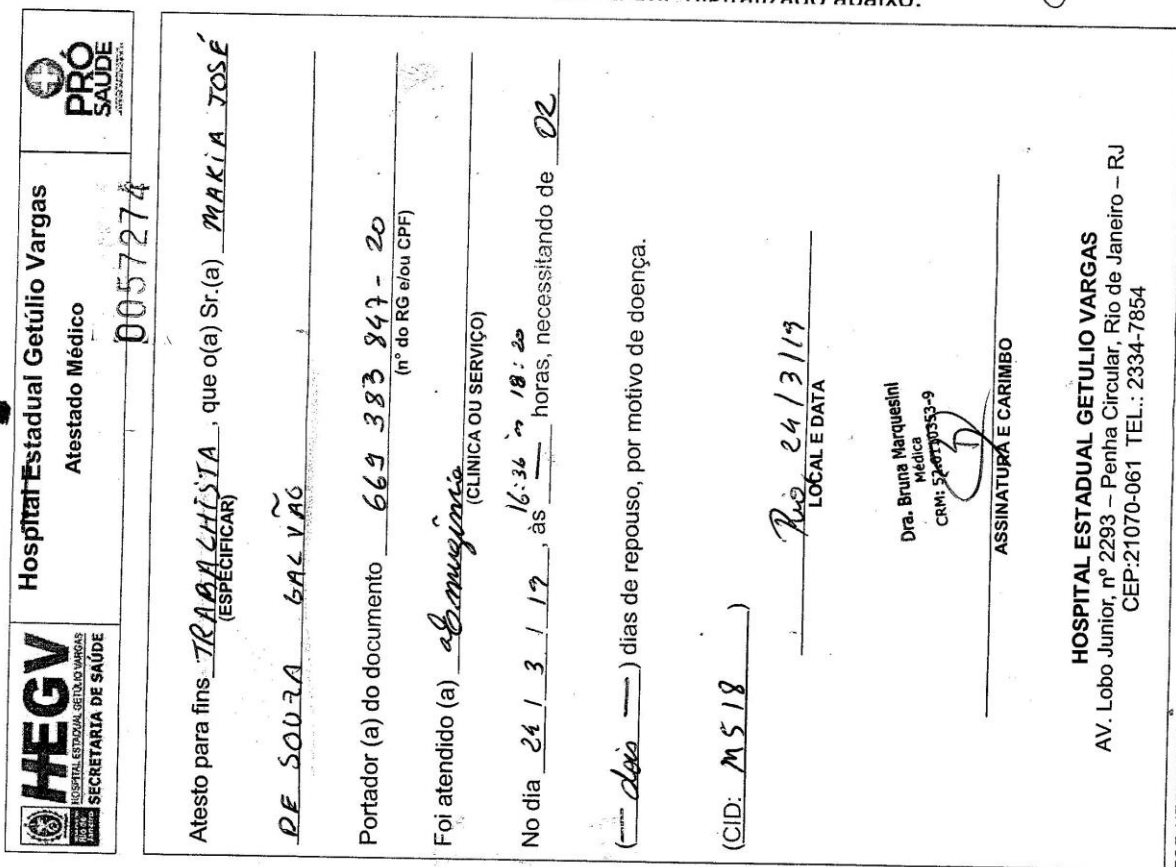 abaixo.
HEGV
HOSPITAL ESTADUAL GETÚLIO VARGAS
SECRETARIA DE SAÚDE
Hospital Estadual Getúlio Vargas
Atestado Médico
PRÓ
SAÚDE
0057274
Atesto para fins TRABALHISTA, que o(a) Sr.(a) MARIA JOSÉ
(ESPECIFICAR)
DE SOUZA GALVÃO
Portador (a) do documento 669 383 847- 20
(nº do RG e/ou CPF)
Foi atendido (a)
(CLÍNICA OU SERVIÇO)
No dia 24 / 3 / 19, às 16:36 às 18:20 horas, necessitando de 02
( dois ) dias de repouso, por motivo de doença.
(CID: M518 )
Rio 24/3/19
LOCAL E DATA
Dra. Bruna Marquesini
Médica
CRM:
ASSINATURA E CARIMBO
HOSPITAL ESTADUAL GETULIO VARGAS
AV. Lobo Junior, nº 2293 – Penha Circular, Rio de Janeiro – RJ
CEP:21070-061 TEL.: 2334-7854